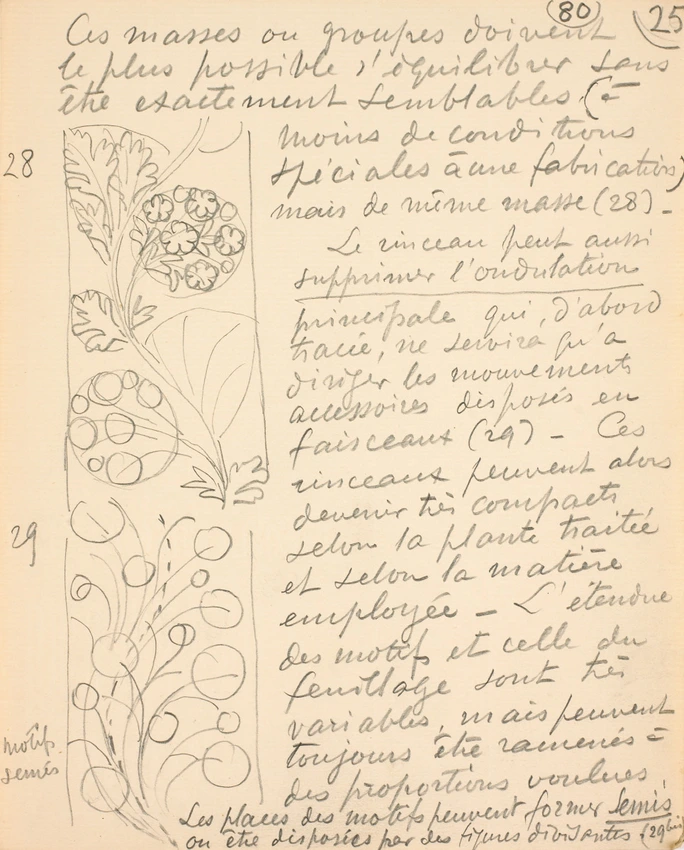 80 25
Ces masses ou groupes doivent
le plus possible s'équilibrer sans
être exactement semblables (à
moins de conditions
spéciales à une fabrication)
mais de même masse (28) -
28
Le rinceau peut aussi
supprimer l'ondulation
principale qui, d'abord
tracée, ne servira qu'à
diriger les mouvements
accessoires disposés en
faisceaux (29) - Ces
rinceaux peuvent alors
devenir très compacts
selon la plante traitée
et selon la matière
employée - L'étendue
des motifs et celle du
feuillage sont très
variables, mais peuvent
toujours être ramenés à
des proportions voulues,
29
motifs
semés
Les places des motifs peuvent former Semis
ou être disposées par des figures divisantes (29 bis)